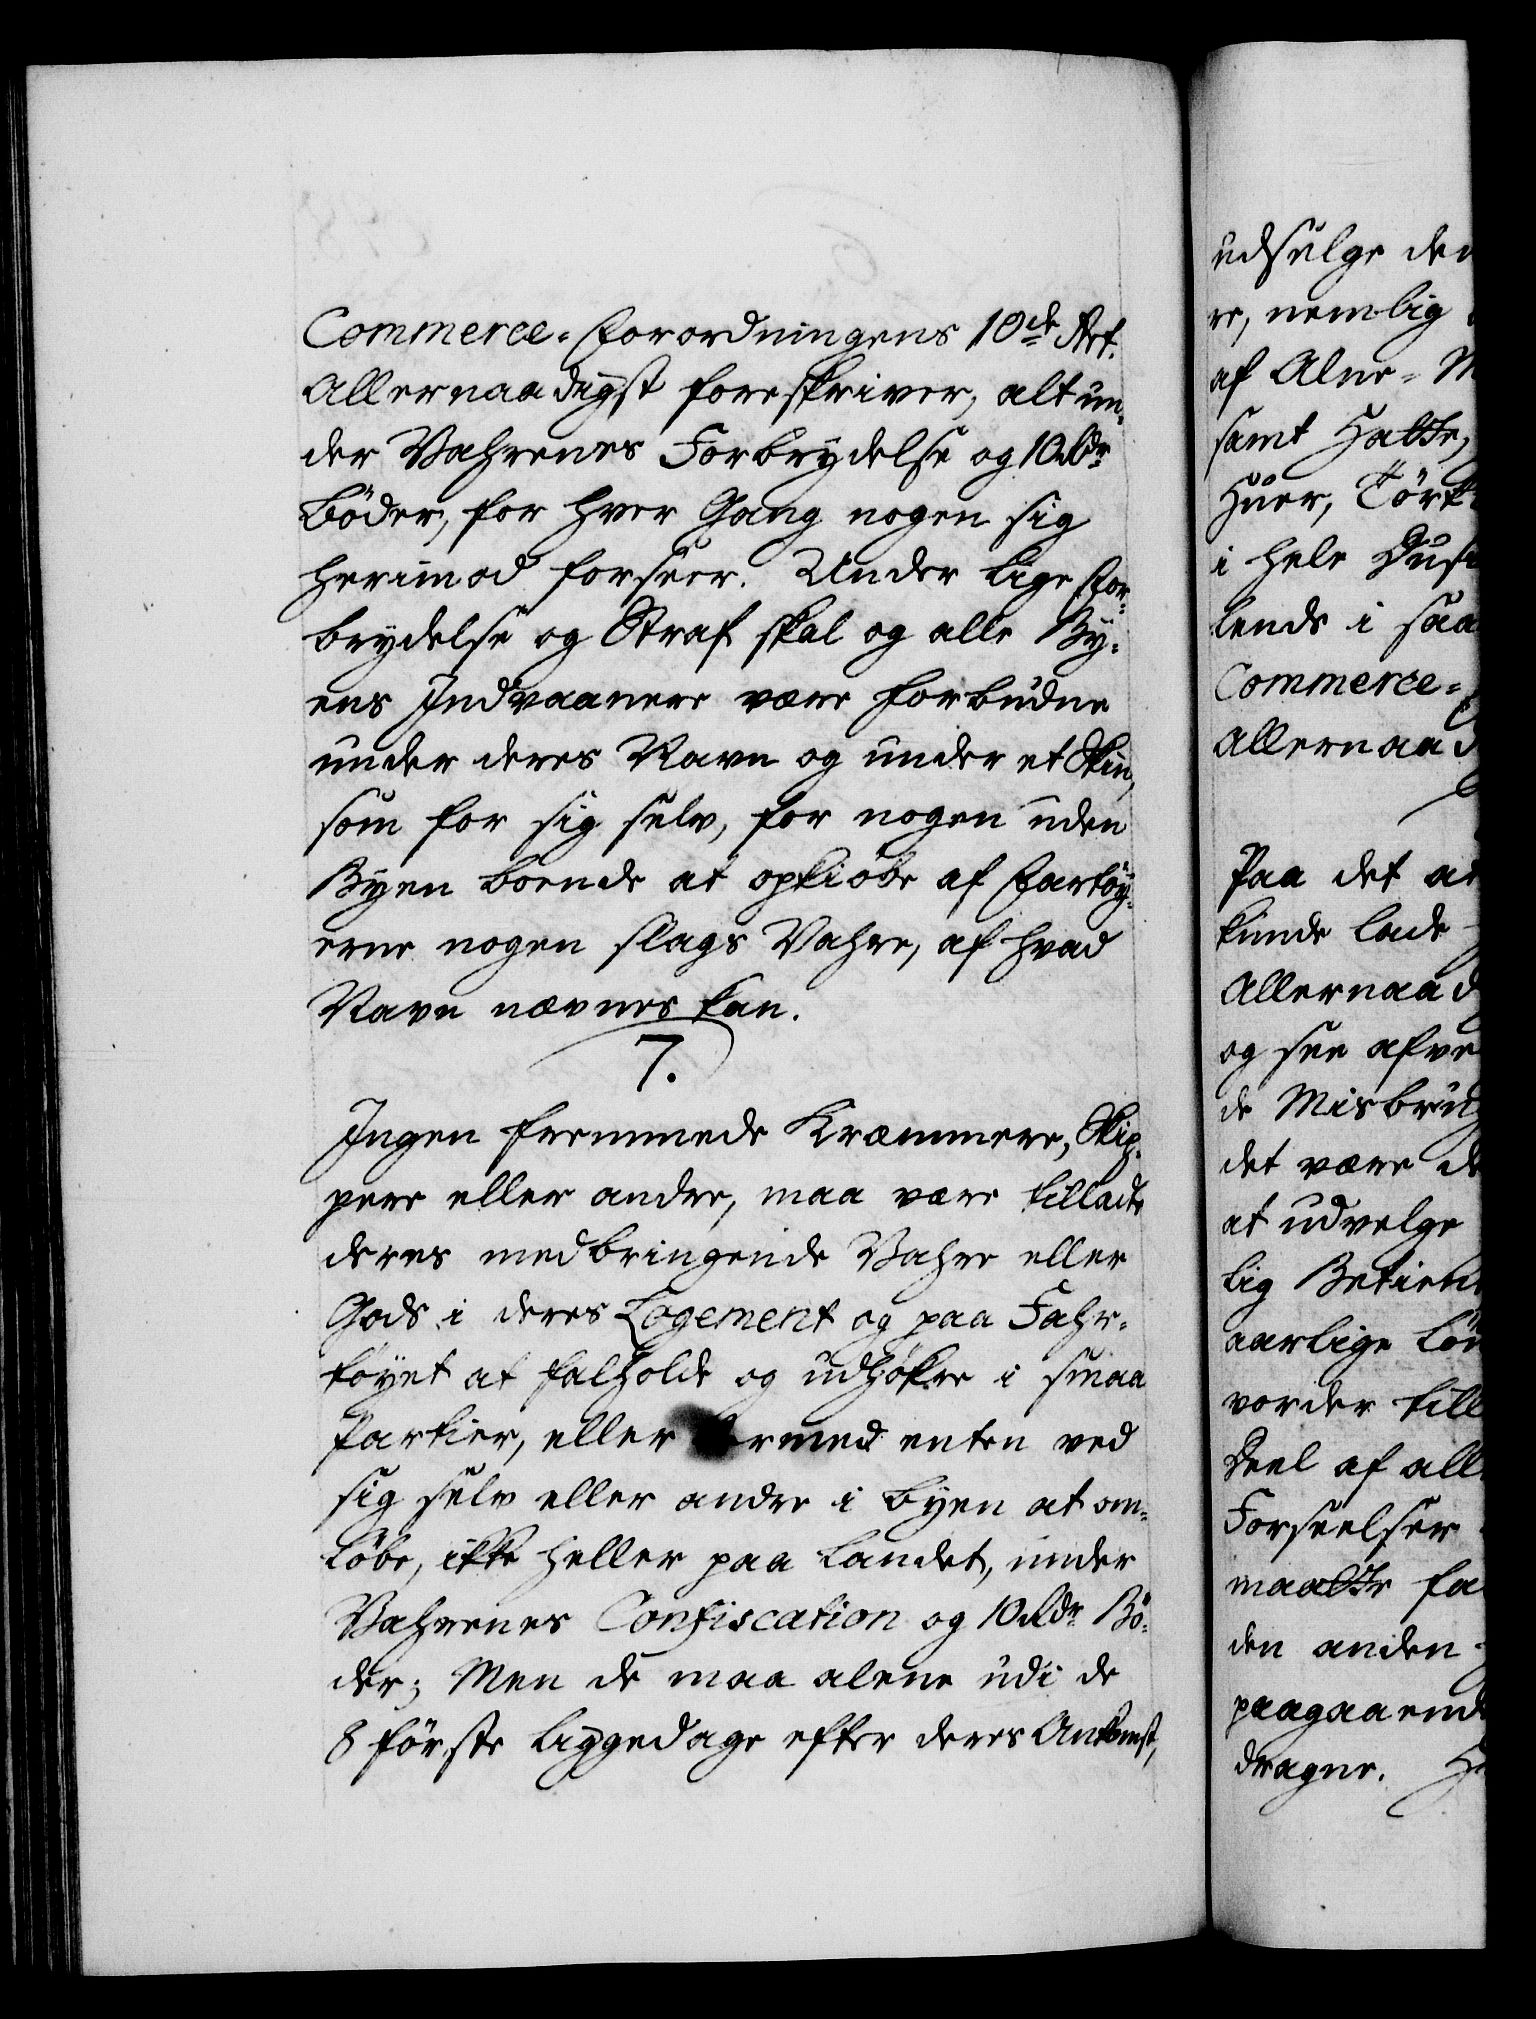 Commerce-Forordningens 10de Art.
Allernaadigst foreskriver, alt un-
der Vahrenes Forbrydelse og 10 Rdr
Böder, for hver Gang nogen sig
herimod forseer. Under lige For-
brydelse og Straf skal og alle By-
ens Indvaanere være forbudne
under deres Navn og under et Skin,
som for sig selv, for nogen uden
Byen boende at opkiöbe af Fartöy-
erne nogen slags Vahre, af hvad
Navn nævnes kan.
7.
Ingen fremmede Kræmmere, Skip-
pere eller andre, maa være tilladt
deres medbringende Vahre eller
Gods i deres Logement og paa Fahr-
töyet at falholde og udhökre i smaa
Partier, eller dermed enten ved
sig selv eller andre i byen at om-
löbe, ikke heller paa Landet, under
Vahrenes Confiscation og 10 Rdr Bö-
der; Men de maa alene udi de
8 förste Liggedage efter deres Ankomst,
udselge den
re, nemlig
af Alne-M
samt Hatte,
Huer, Törk
i hele Dusi
lends i saa
Commerce-
Allernaad
Paa det at
kunde lade
Allernaad
og see afve
de Misbrug
det være de
at udvelge
lig Betient
aarlige Lön
vorder till
Deel af all
Forseelser
maatte fa
den anden
paagaaend
dragne. H